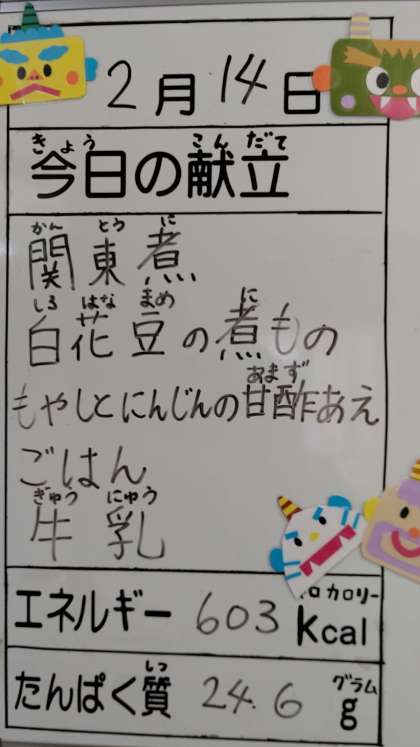 2月14日
きょう こんだて
今日の献立
かん とう に
関東煮
しろ はな まめ に
白花豆の煮もの
あまず
もやしとにんじんの甘酢あえ
ごはん
ぎゅう にゅう
牛乳
ロカロリー
エネルギー 603 kcal
しつ グラム
たんぱく質 24.6 g